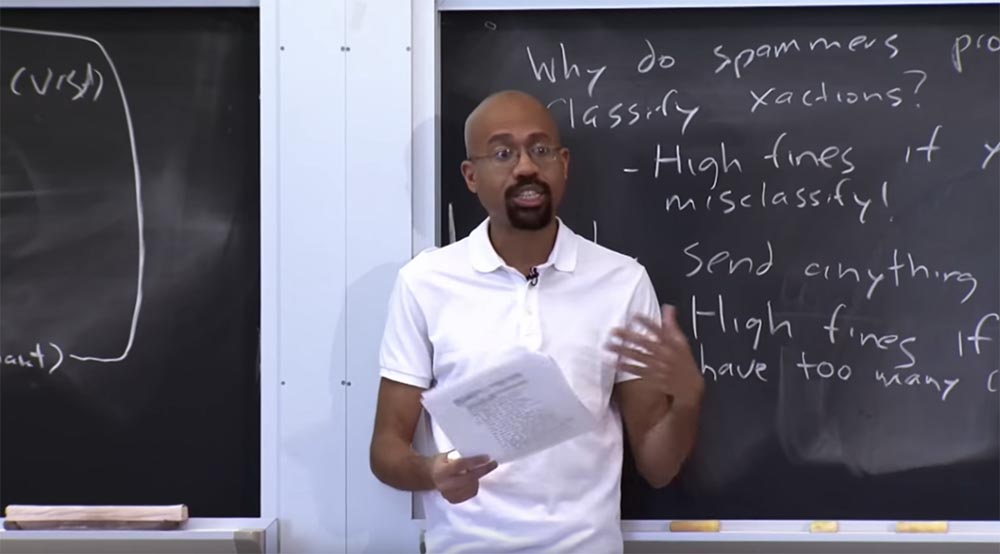 (Visa)
Why do spammers pro
Classify xactions?
- High fines if y
misclassify!
Send anything
High fines if
have too many c